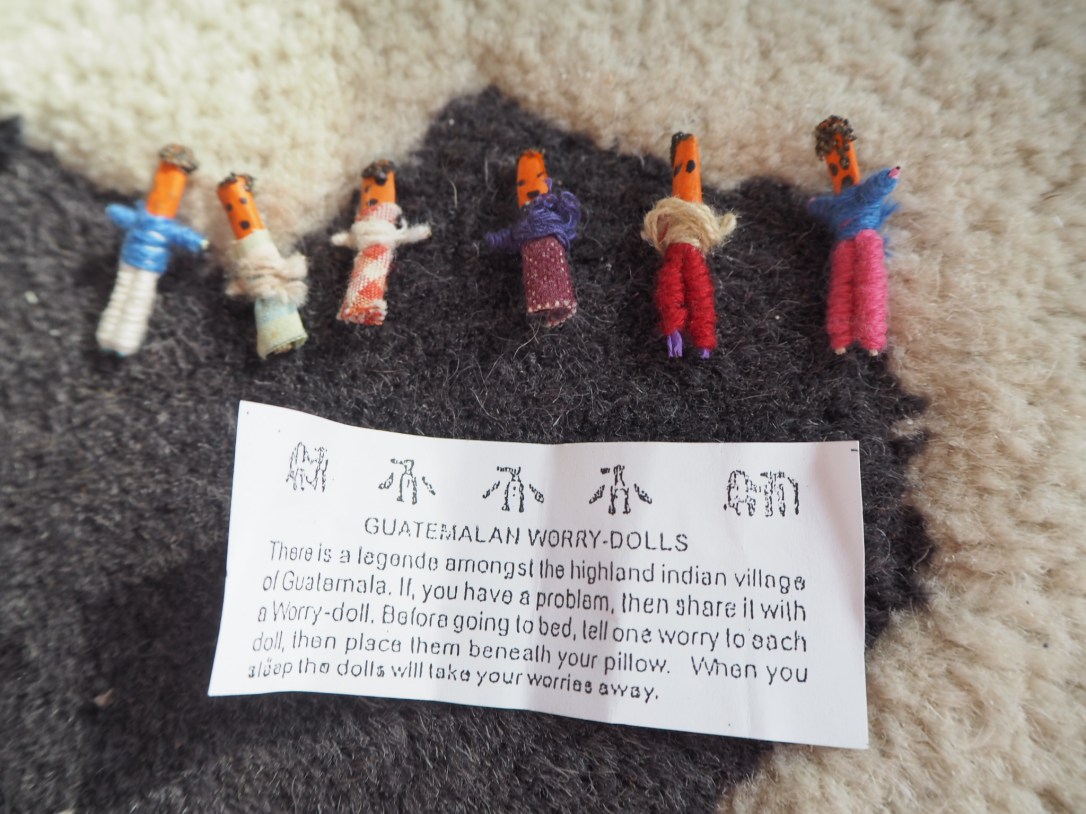 GUATEMALAN WORRY-DOLLS
There is a legende amongst the highland indian village
of Guatemala. If, you have a problem, then share it with
a Worry-doll. Before going to bed, tell one worry to each
doll, then place them beneath your pillow. When you
sleep the dolls will take your worries away.